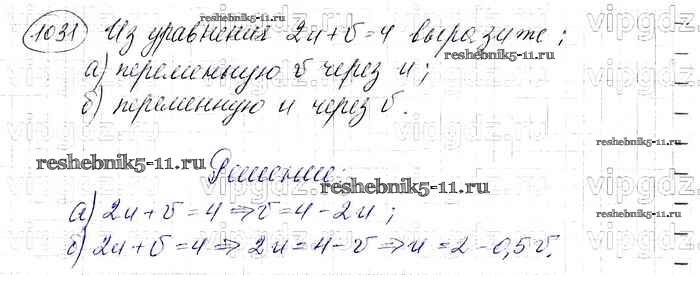 1031 Из уравнения 2u+v=4 выразите;
а) переменную v через u;
б) переменную u через v.
Решение:
а) 2u+v=4⇒v=4-2u;
б) 2u+v=4⇒2u=4-v⇒u=2-0,5v.
reshebnik5-11.ru
reshebnik5-11.ru
reshebnik5-11.ru
reshebnik5-11.ru
reshebnik5-11.ru
vipgdz.ru
vipgdz.ru
vipgdz.ru
vipgdz.ru